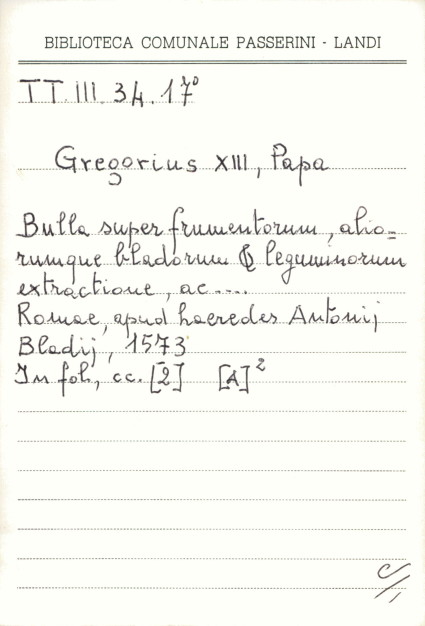 BIBLIOTECA COMUNALE PASSERINI - LANDI
TT.III.34.17°
Gregorius XIII, Papa
Bulla super frumentorum, alio=
rumque bladorum & leguminorum
extractione, ac....
Romae, apud haeredes Antonij
Bladij, 1573
In fol., cc. [2] [A]²